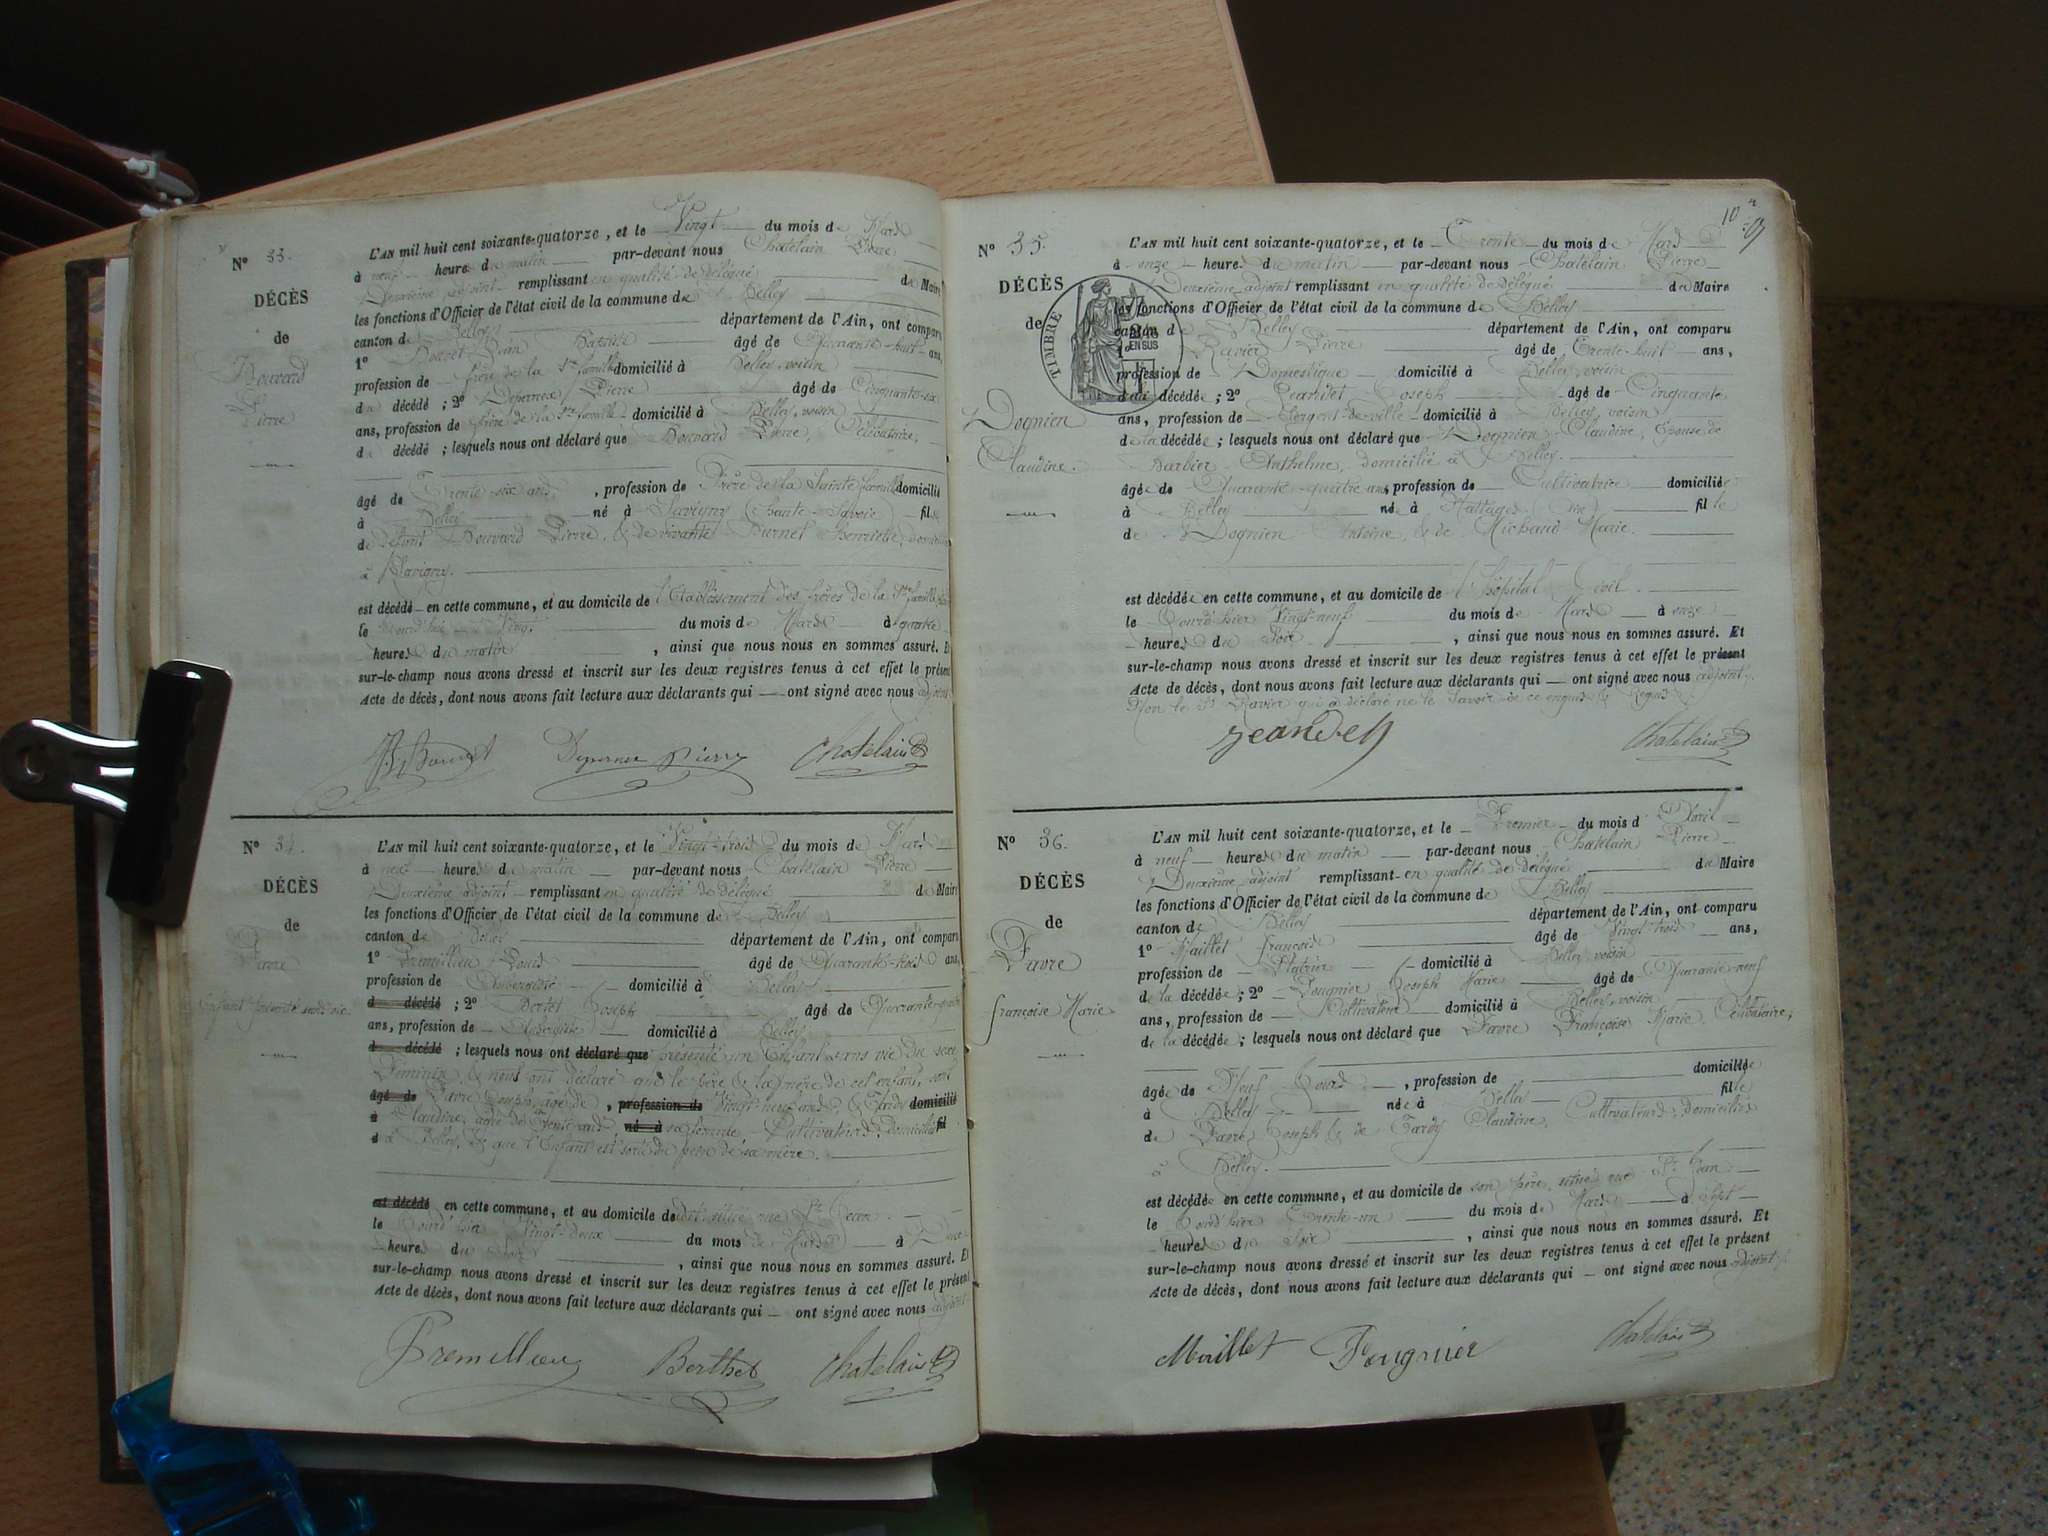 N° 33.
DÉCÈS
de
Bouvard
Pierre
L'AN mil huit cent soixante-quatorze, et le Vingt du mois de Mars
à neuf heures du matin par-devant nous Chatelain Pierre
Deuxième adjoint remplissant en qualité de délégué du Maire
les fonctions d'Officier de l'état civil de la commune de Belley
canton de Belley département de l'Ain, ont comparu
1° Jean Baptiste âgé de Quarante-huit ans,
profession de frère de la Ste famille domicilié à Belley, voisin
du décédé ; 2° Depernex Pierre âgé de Cinquante-six
ans, profession de frère de la Ste famille domicilié à Belley, voisin
du décédé ; lesquels nous ont déclaré que Bouvard Pierre, Célibataire,
âgé de Trente-six ans, profession de Frère de la Sainte famille domicilié
à Belley né à Savigny (haute-Savoie) fils
de défunt Bouvard Pierre, & de vivante Burnet henriette,
à Savigny.
est décédé en cette commune, et au domicile de l'Etablissement des frères de la Ste famille
le jourd'hui Vingt du mois de Mars à quatre
heures du matin, ainsi que nous nous en sommes assuré. Et
sur-le-champ nous avons dressé et inscrit sur les deux registres tenus à cet effet le présent
Acte de décès, dont nous avons fait lecture aux déclarants qui ont signé avec nous adjoint.
Depernex Pierre Chatelain
N° 34.
DÉCÈS
de
Favre
Enfant présenté sans vie.
L'AN mil huit cent soixante-quatorze, et le Vingt-trois du mois de Mars
à neuf heures du matin par-devant nous Chatelain Pierre
Deuxième adjoint remplissant en qualité de délégué du Maire
les fonctions d'Officier de l'état civil de la commune de Belley
canton de Belley département de l'Ain, ont comparu
1° Premillieu Louis âgé de Quarante-trois ans,
profession de Aubergiste domicilié à Belley
d décédé ; 2° Bertet Joseph âgé de Quarante-quatre
ans, profession de Aubergiste domicilié à Belley
d décédé ; lesquels nous ont déclaré que présenté un Enfant sans vie du sexe
Féminin, & nous ont déclaré que le père & la mère de cet enfant, sont
âgé de Favre Joseph, âgé de, profession de Vingt-neuf ans, & Tardy domicilié
à Claudine, âgée de Trente ans né à sa femme, Cultivateurs, domiciliés fil
d à Belley, & que l'Enfant est sorti du sein de sa mère.
est décédé en cette commune, et au domicile de dit, situé rue St Jean.
le jourd'hier Vingt-deux du mois de Mars à
heures du Soir, ainsi que nous nous en sommes assuré. Et
sur-le-champ nous avons dressé et inscrit sur les deux registres tenus à cet effet le présent
Acte de décès, dont nous avons fait lecture aux déclarants qui ont signé avec nous adjoint.
Premillieu Berthet Chatelain
10
N° 35.
DÉCÈS
de
Dognien
Claudine.
TIMBRE
EN SUS
L'AN mil huit cent soixante-quatorze, et le Trente du mois de Mars
à onze heures du matin par-devant nous Chatelain Pierre
Deuxième adjoint remplissant en qualité de délégué du Maire
les fonctions d'Officier de l'état civil de la commune de Belley
canton de Belley département de l'Ain, ont comparu
1° Ravier Pierre âgé de Trente-huit ans,
profession de Domestique domicilié à Belley, voisin
de la décédée ; 2° Jeandet Joseph âgé de Cinquante
ans, profession de Sergent-de-ville domicilié à Belley, voisin
de la décédée ; lesquels nous ont déclaré que Dognien Claudine, Epouse de
Barbier Anthelme, domicilié à Belley.
âgée de Quarante-quatre ans, profession de Cultivatrice domiciliée
à Belley née à Nattages (Ain) fille
de Dognien Antoine, & de Michaud Marie.
est décédée en cette commune, et au domicile de l'hôpital Civil.
le jourd'hier Vingt-neuf du mois de Mars à onze
heures du Soir, ainsi que nous nous en sommes assuré. Et
sur-le-champ nous avons dressé et inscrit sur les deux registres tenus à cet effet le présent
Acte de décès, dont nous avons fait lecture aux déclarants qui ont signé avec nous adjoint.
Non le Sr Ravier qui a déclaré ne le Savoir de ce enquis & requis.
Jeandet Chatelain
N° 36.
DÉCÈS
de
Favre
françoise Marie
L'AN mil huit cent soixante-quatorze, et le Premier du mois d'Avril
à neuf heures du matin par-devant nous Chatelain Pierre
Deuxième adjoint remplissant en qualité de délégué du Maire
les fonctions d'Officier de l'état civil de la commune de Belley
canton de Belley département de l'Ain, ont comparu
1° Maillet françois âgé de Vingt-trois ans,
profession de Platrier domicilié à Belley, voisin
de la décédée ; 2° Pougnier Joseph Marie âgé de Quarante-neuf
ans, profession de Cultivateur domicilié à Belley, voisin
de la décédée ; lesquels nous ont déclaré que Favre Françoise Marie, Célibataire,
âgée de Neuf Jours, profession de domiciliée
à Belley née à Belley fille
de Favre Joseph & de Tardy Claudine, Cultivateurs, domiciliés
à Belley.
est décédée en cette commune, et au domicile de son père, situé rue St Jean
le jourd'hier Trente-un du mois de Mars à Sept
heures du Soir, ainsi que nous nous en sommes assuré. Et
sur-le-champ nous avons dressé et inscrit sur les deux registres tenus à cet effet le présent
Acte de décès, dont nous avons fait lecture aux déclarants qui ont signé avec nous adjoint.
Maillet Pougnier Chatelain